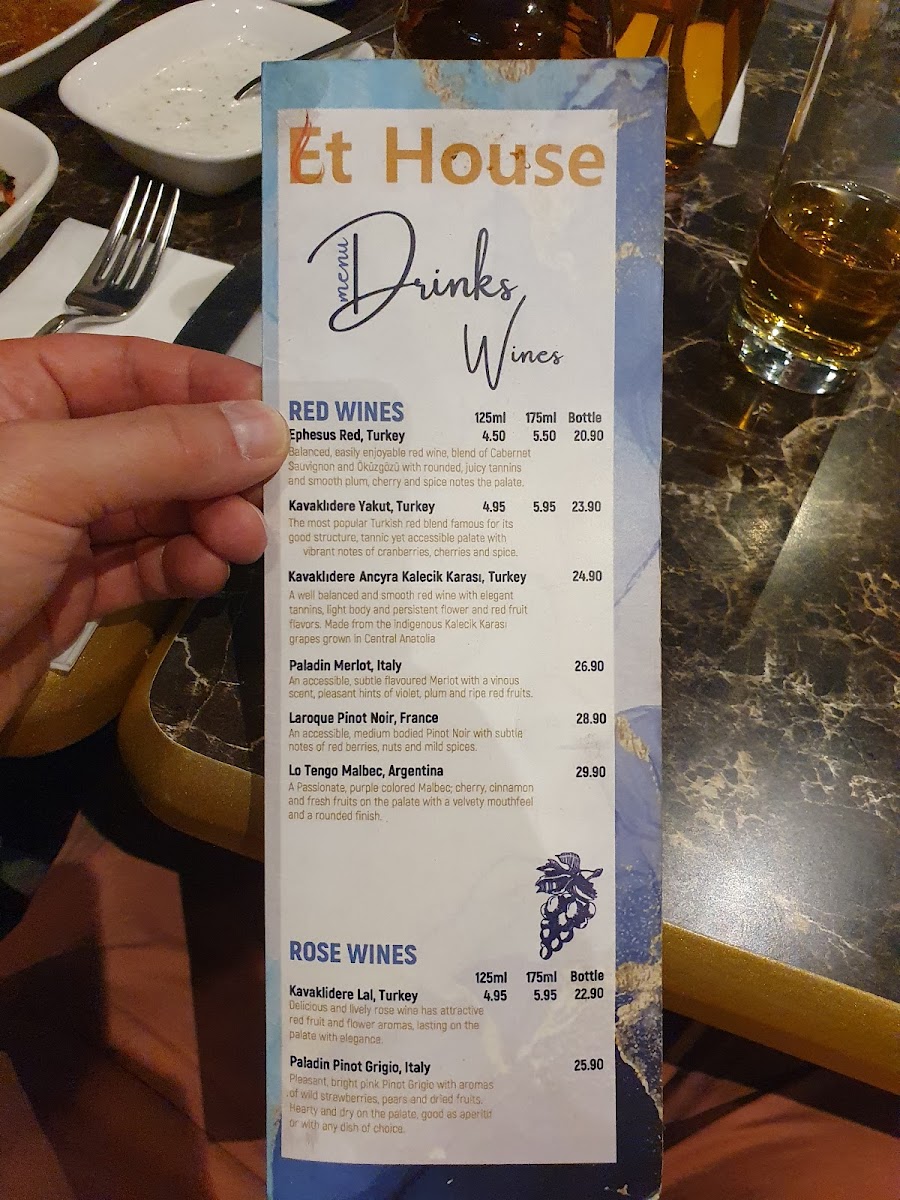 Et House
menu
Drinks
Wines
RED WINES 125ml 175ml Bottle
Ephesus Red, Turkey 4.50 5.50 20.90
Balanced, easily enjoyable red wine, blend of Cabernet
Sauvignon and Öküzgözü with rounded, juicy tannins
and smooth plum, cherry and spice notes the palate.
Kavaklıdere Yakut, Turkey 4.95 5.95 23.90
The most popular Turkish red blend famous for its
good structure, tannic yet accessible palate with
vibrant notes of cranberries, cherries and spice.
Kavaklıdere Ancyra Kalecik Karası, Turkey 24.90
A well balanced and smooth red wine with elegant
tannins, light body and persistent flower and red fruit
flavors. Made from the indigenous Kalecik Karası
grapes grown in Central Anatolia
Paladin Merlot, Italy 26.90
An accessible, subtle flavoured Merlot with a vinous
scent, pleasant hints of violet, plum and ripe red fruits.
Laroque Pinot Noir, France 28.90
An accessible, medium bodied Pinot Noir with subtle
notes of red berries, nuts and mild spices.
Lo Tengo Malbec, Argentina 29.90
A Passionate, purple colored Malbec; cherry, cinnamon
and fresh fruits on the palate with a velvety mouthfeel
and a rounded finish.
ROSE WINES
125ml 175ml Bottle
Kavaklidere Lal, Turkey 4.95 5.95 22.90
Delicious and lively rose wine has attractive
red fruit and flower aromas, lasting on the
palate with elegance.
Paladin Pinot Grigio, Italy 25.90
Pleasant, bright pink Pinot Grigio with aromas
of wild strawberries, pears and dried fruits.
Hearty and dry on the palate, good as aperitif
or with any dish of choice.